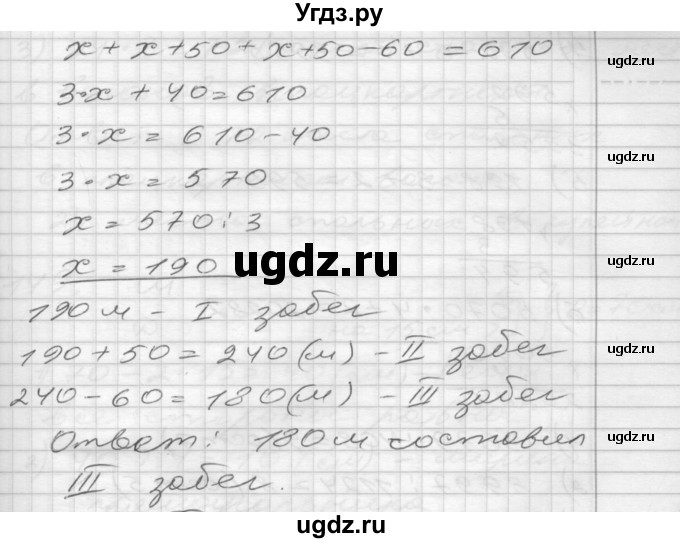 Угдз.ру
x + x + 50 + x + 50 - 60 = 610
ugdz.ru
3·x + 40 = 610
3·x = 610 - 40
ugdz.ru
3·x = 570
x = 570 : 3
x = 190
ugdz.ru
ugdz.ru
190 м - I забег
190 + 50 = 240 (м) - II забег
ugdz.ru
240 - 60 = 180 (м) - III забег
Ответ: 180 м составил
ugdz.ru
III забег.
ugdz.ru